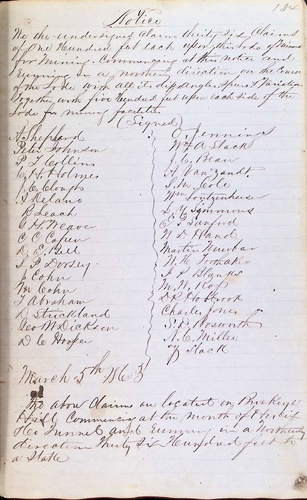 Notice
We the undersigned Claim thirty Six Claims
of One Hundred feet each upon this Lode
for Mining. Commencing at this Notice and
running in a northerly direction on the course
of the Lode with all its dips angles Spurs & Variations
Together with five Hundred feet upon each side of the
Lode for mining facilities
(Signed)
Shepherd
Peter Johnson
P T Collins
Holmes
J. C. Clough
S Delano
B Leach
G H Weave
C C Capen
D. E. Bell
J P Dorsey
S Cohn
M Cohn
T Abraham
D Strickland
Geo M Dickson
D C Hooper
O. Jennings
Wm A Stack
J C Bean
A Van Zandt
S. M. Cole
Wm
Simmons
Sanford
D Hand
Martin
W H
S P Blanks
M. N. Kof
D R Holbrook
Charles Jones
P. Bosworth
A. C. Miller
Stack
March 5th 1863
The above Claims are located on Buckeye
Hill Commence at the Mouth of
Tunnel and running in a Northerly
direction Thirty Six Hundred feet to
a Stake